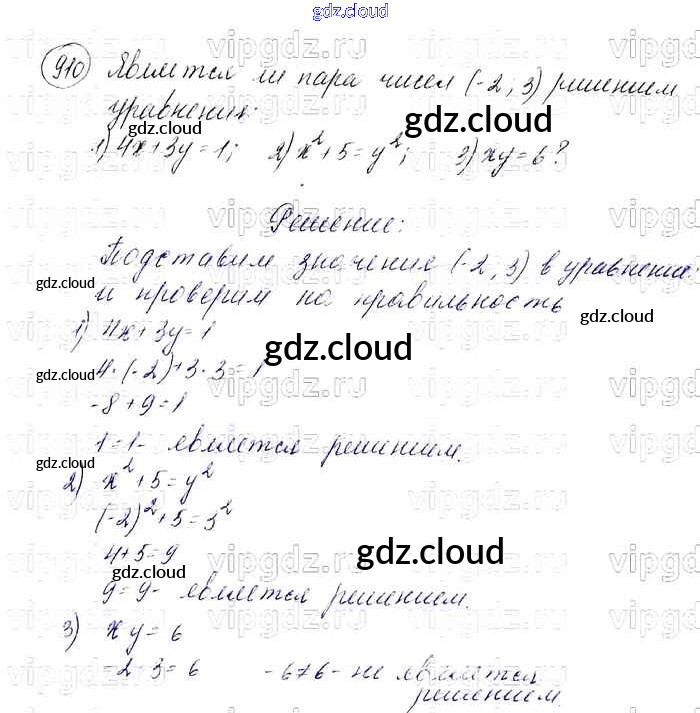 gdz.cloud
910 Является ли пара чисел (-2; 3) решением
уравнения:
gdz.cloud gdz.cloud
1) 4x+3y=1; 2) x²+5=y²; 3) xy=6?
Решение:
Подставим значения (-2, 3) в уравнение
gdz.cloud
и проверим на правильность
gdz.cloud
1) 4x+3y=1
gdz.cloud
4·(-2)+3·3=1
gdz.cloud gdz.cloud
-8+9=1
1=1- является решением.
gdz.cloud
2) x²+5=y²
(-2)²+5=3²
4+5=9
gdz.cloud
gdz.cloud gdz.cloud
9=9- является решением.
3) xy=6
-2·3=6 -6≠6- не является
решением.
vipgdz.ru